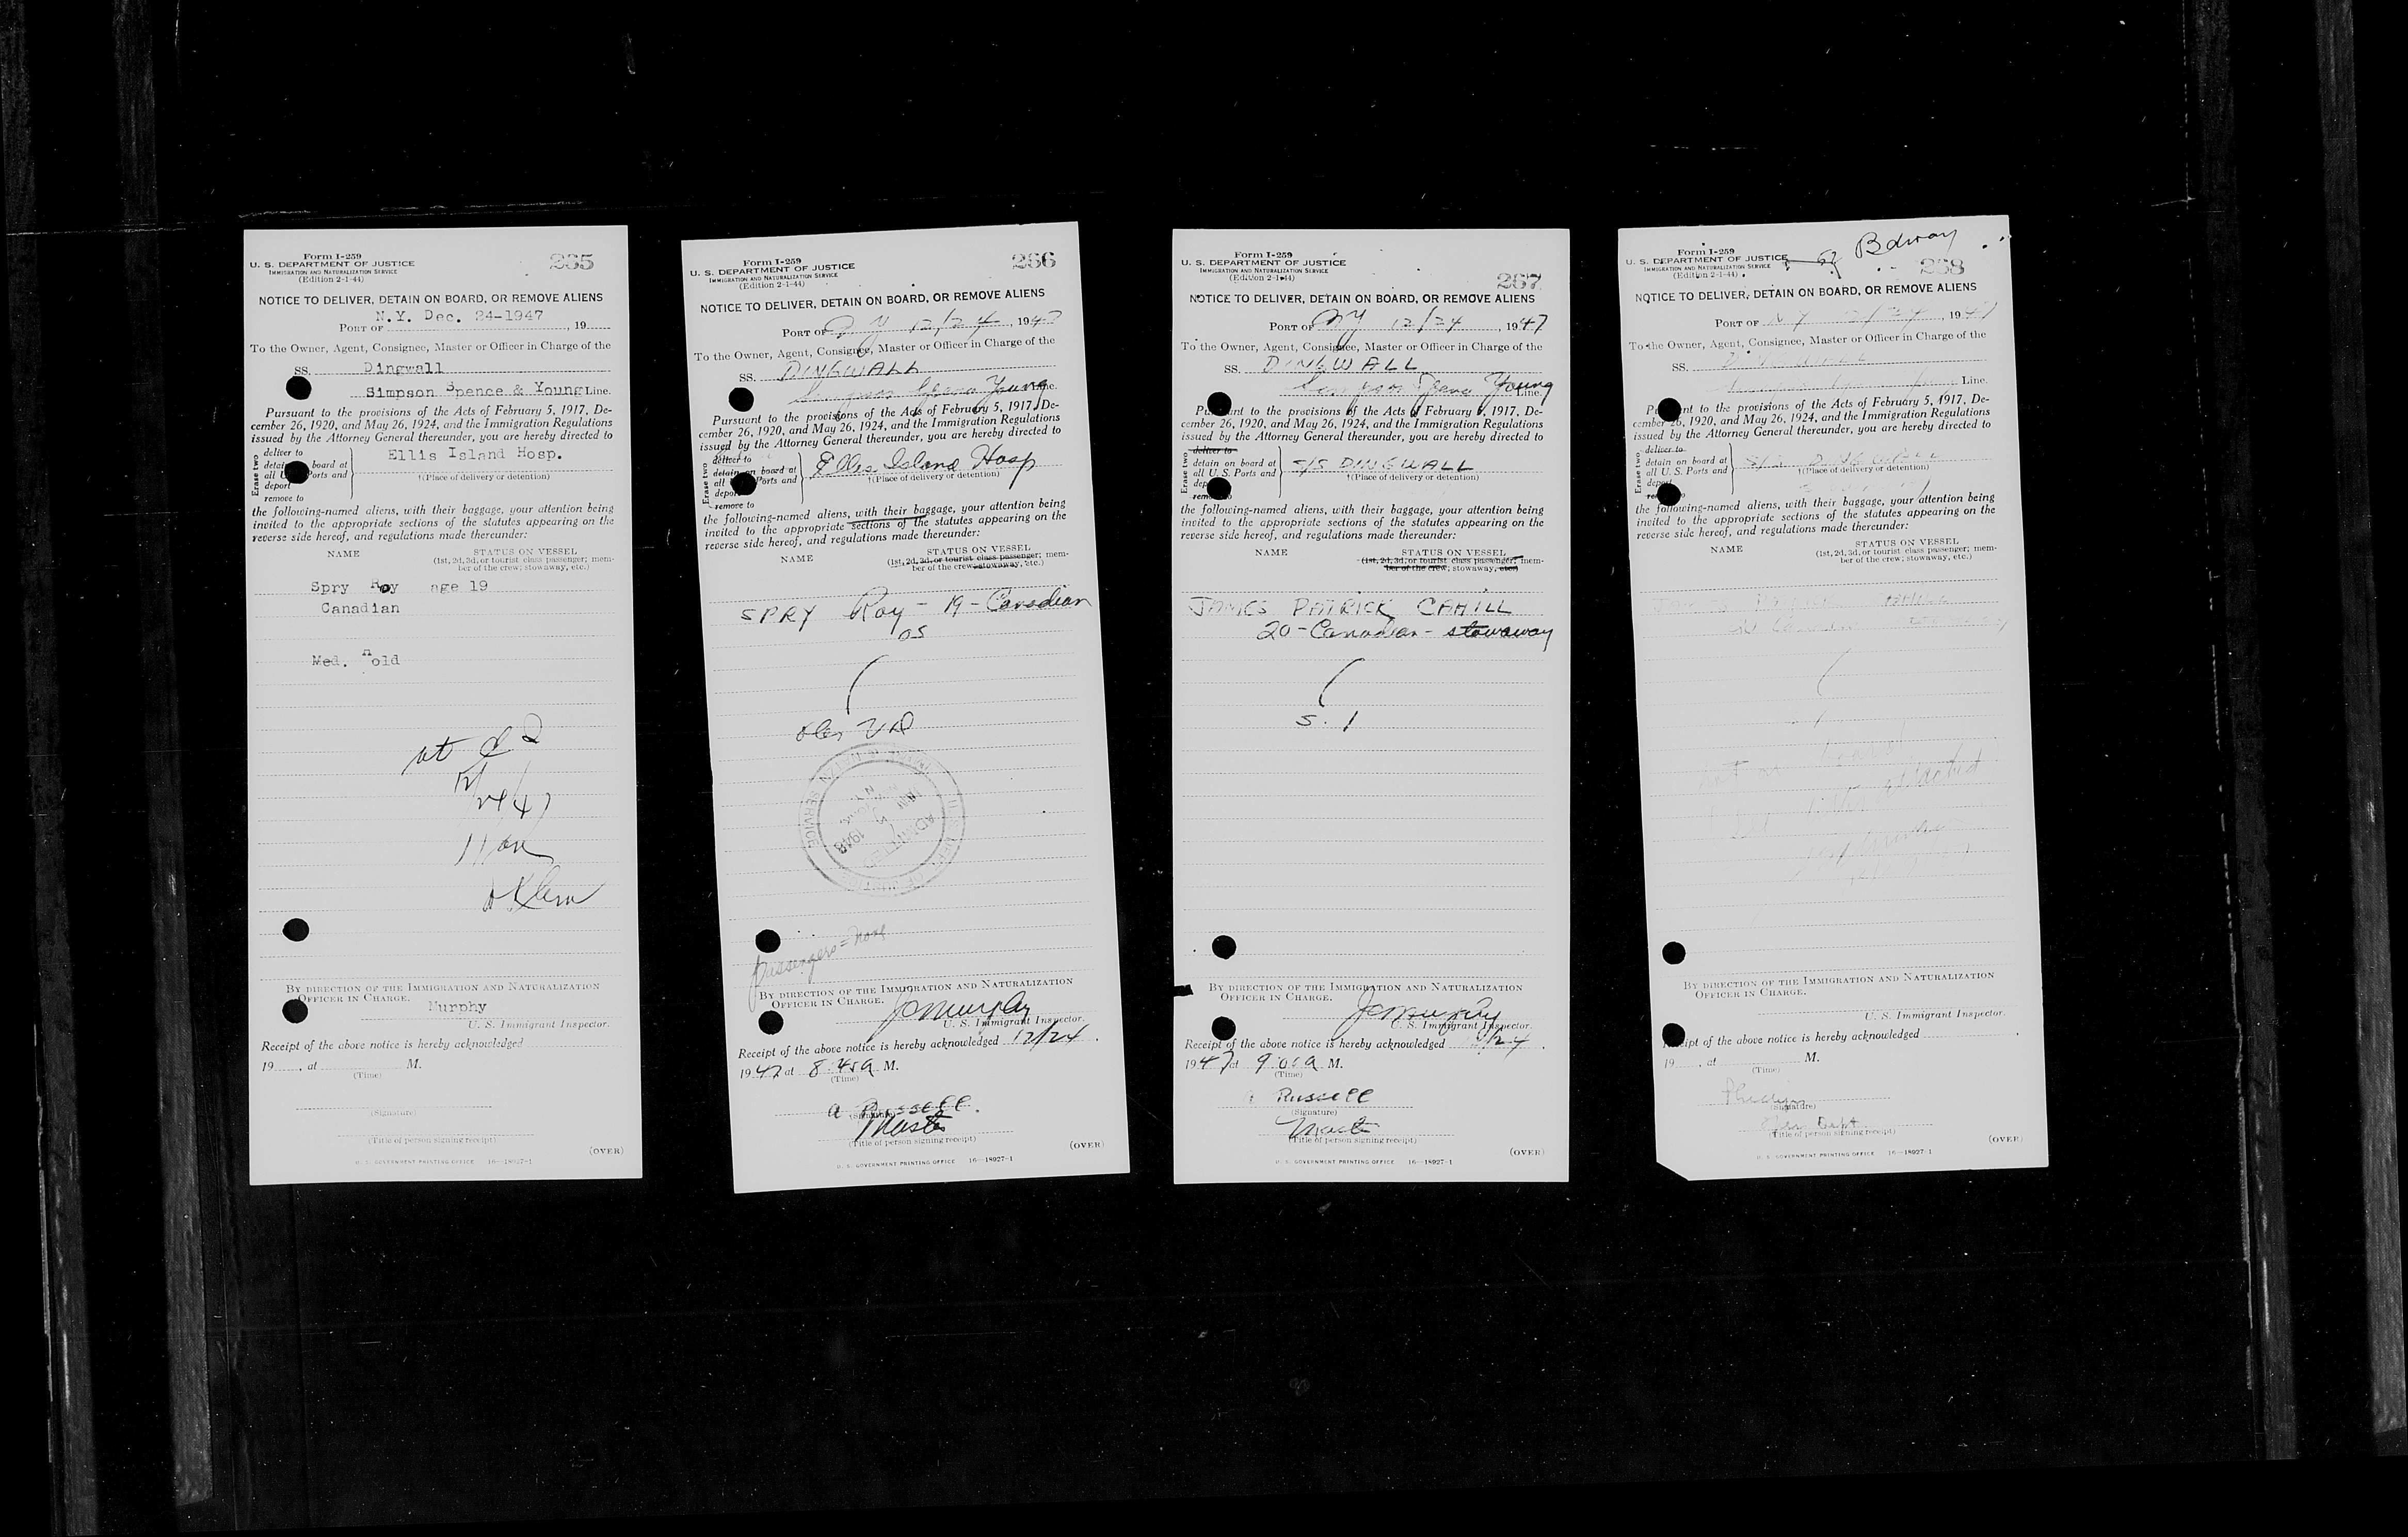 Form I-259
U. S. DEPARTMENT OF JUSTICE
IMMIGRATION AND NATURALIZATION SERVICE
(Edition 2-1-44)
235
NOTICE TO DELIVER, DETAIN ON BOARD, OR REMOVE ALIENS
N.Y. Dec. 24-1947
PORT OF , 19
To the Owner, Agent, Consignee, Master or Officer in Charge of the
SS. Dingwall
Simpson Spence & Young Line.
Pursuant to the provisions of the Acts of February 5, 1917, De-
cember 26, 1920, and May 26, 1924, and the Immigration Regulations
issued by the Attorney General thereunder, you are hereby directed to
Erase two
deliver to
detain board at
all U Ports and
deport
remove to
Ellis Island Hosp.
†(Place of delivery or detention)
the following-named aliens, with their baggage, your attention being
invited to the appropriate sections of the statutes appearing on the
reverse side hereof, and regulations made thereunder:
NAME STATUS ON VESSEL
(1st, 2d, 3d, or tourist class passenger; mem-
ber of the crew; stowaway, etc.)
Spry Roy age 19
Canadian
Med. Hold
at
11 am
BY DIRECTION OF THE IMMIGRATION AND NATURALIZATION
OFFICER IN CHARGE.
Murphy
U. S. Immigrant Inspector.
Receipt of the above notice is hereby acknowledged
19 , at M.
(Time)
(Signature)
(Title of person signing receipt)
(OVER)
U. S. GOVERNMENT PRINTING OFFICE 16—18927-1
Form I-259
U. S. DEPARTMENT OF JUSTICE
IMMIGRATION AND NATURALIZATION SERVICE
(Edition 2-1-44)
266
NOTICE TO DELIVER, DETAIN ON BOARD, OR REMOVE ALIENS
PORT OF N Y 12/24, 1947
To the Owner, Agent, Consignee, Master or Officer in Charge of the
SS. DINGWALL
Simpson Young Line.
Pursuant to the provisions of the Acts of February 5, 1917, De-
cember 26, 1920, and May 26, 1924, and the Immigration Regulations
issued by the Attorney General thereunder, you are hereby directed to
Erase two
deliver to
detain on board at
all Ports and
deport
remove to
Ellis Island Hosp
†(Place of delivery or detention)
the following-named aliens, with their baggage, your attention being
invited to the appropriate sections of the statutes appearing on the
reverse side hereof, and regulations made thereunder:
NAME STATUS ON VESSEL
(1st, 2d, 3d, or tourist class passenger; mem-
ber of the crew; stowaway, etc.)
SPRY Roy - 19 - Canadian
OS
VD
ADMITTED
1948
SERVICE
Passengers = none
BY DIRECTION OF THE IMMIGRATION AND NATURALIZATION
OFFICER IN CHARGE.
J Murphy
U. S. Immigrant Inspector.
Receipt of the above notice is hereby acknowledged 12/24.
1947 at 8:45 a M.
(Time)
a Russell.
(Signature)
Master
(Title of person signing receipt)
(OVER)
U. S. GOVERNMENT PRINTING OFFICE 16—18927-1
Form I-259
U. S. DEPARTMENT OF JUSTICE
IMMIGRATION AND NATURALIZATION SERVICE
(Edition 2-1-44)
267
NOTICE TO DELIVER, DETAIN ON BOARD, OR REMOVE ALIENS
PORT OF NY 12/24, 1947
To the Owner, Agent, Consignee, Master or Officer in Charge of the
SS. DINGWALL
Simpson Young Line.
Pursuant to the provisions of the Acts of February 5, 1917, De-
cember 26, 1920, and May 26, 1924, and the Immigration Regulations
issued by the Attorney General thereunder, you are hereby directed to
Erase two
deliver to
detain on board at
all U. S. Ports and
deport
remove to
S/S DINGWALL
†(Place of delivery or detention)
the following-named aliens, with their baggage, your attention being
invited to the appropriate sections of the statutes appearing on the
reverse side hereof, and regulations made thereunder:
NAME STATUS ON VESSEL
(1st, 2d, 3d, or tourist class passenger; mem-
ber of the crew; stowaway, etc.)
JAMES PATRICK CAHILL
20 - Canadian - stowaway
S. I
BY DIRECTION OF THE IMMIGRATION AND NATURALIZATION
OFFICER IN CHARGE.
J Murphy
U. S. Immigrant Inspector.
Receipt of the above notice is hereby acknowledged 12/24.
1947 at 9:05 a M.
(Time)
a Russell
(Signature)
Master
(Title of person signing receipt)
(OVER)
U. S. GOVERNMENT PRINTING OFFICE 16—18927-1
Bdway
Form I-259
U. S. DEPARTMENT OF JUSTICE
IMMIGRATION AND NATURALIZATION SERVICE
(Edition 2-1-44)
268
NOTICE TO DELIVER, DETAIN ON BOARD, OR REMOVE ALIENS
PORT OF N Y 12/24, 1947
To the Owner, Agent, Consignee, Master or Officer in Charge of the
SS. DINGWALL
Line.
Pursuant to the provisions of the Acts of February 5, 1917, De-
cember 26, 1920, and May 26, 1924, and the Immigration Regulations
issued by the Attorney General thereunder, you are hereby directed to
Erase two
deliver to
detain on board at
all U. S. Ports and
deport
remove to
S/S DINGWALL
†(Place of delivery or detention)
the following-named aliens, with their baggage, your attention being
invited to the appropriate sections of the statutes appearing on the
reverse side hereof, and regulations made thereunder:
NAME STATUS ON VESSEL
(1st, 2d, 3d, or tourist class passenger; mem-
ber of the crew; stowaway, etc.)
JAMES PATRICK CAHILL
20 Canadian stowaway
BY DIRECTION OF THE IMMIGRATION AND NATURALIZATION
OFFICER IN CHARGE.
U. S. Immigrant Inspector.
Receipt of the above notice is hereby acknowledged
19 , at M.
(Time)
(Signature)
Dept.
(Title of person signing receipt)
(OVER)
U. S. GOVERNMENT PRINTING OFFICE 16—18927-1